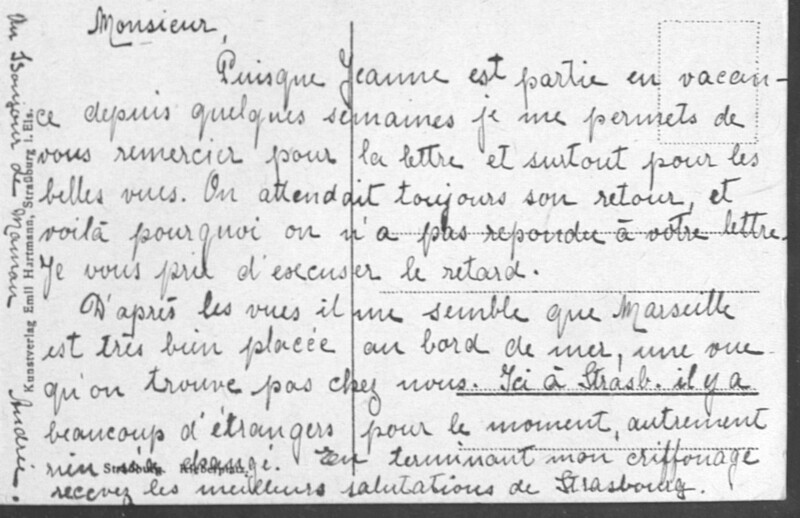 Monsieur,
Puisque Jeanne est partie en vacan-
ce depuis quelques semaines je me permets de
vous remercier pour la lettre et surtout pour les
belles vues. On attendait toujours son retour, et
voilà pourquoi on n'a pas repondu à votre lettre.
Je vous prie d'exscuser le retard.
D'après les vues il me semble que Marseille
est très bien placée au bord de mer, une vue
qu'on trouve pas chez nous. Ici à Strasb. il y a
beaucoup d'étrangers pour le moment, autrement
rien changé. En terminant mon criffonage
recevez les meilleurs salutations de Strasbourg.
Un Bonjour de Maman Andrée.
Kunstverlag Emil Hartmann, Straßburg i. Els.
Straßburg.